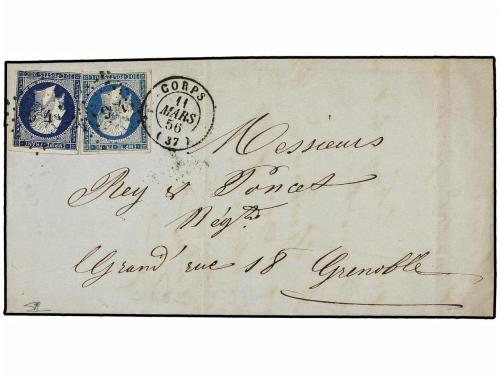 CORPS
11
MARS
56
(37)
Messieurs
Rey & Poncet
Négts
Grand' rue 18 Grenoble